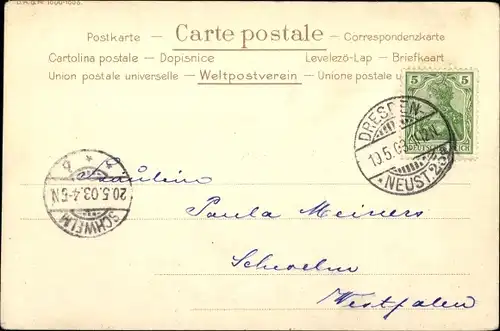 Postkarte — Carte postale — Correspondenzkarte
Cartolina postale — Dopisnice Levelező-Lap — Briefkaart
Union postale universelle — Weltpostverein — Unione postale
5 5
DEUTSCHES REICH
DRESDEN-
10.5.03
* NEUST. 
SCHWELM
20.5.03.4-5N
Fräulein
Paula Meiners
Schwelm
Westfalen